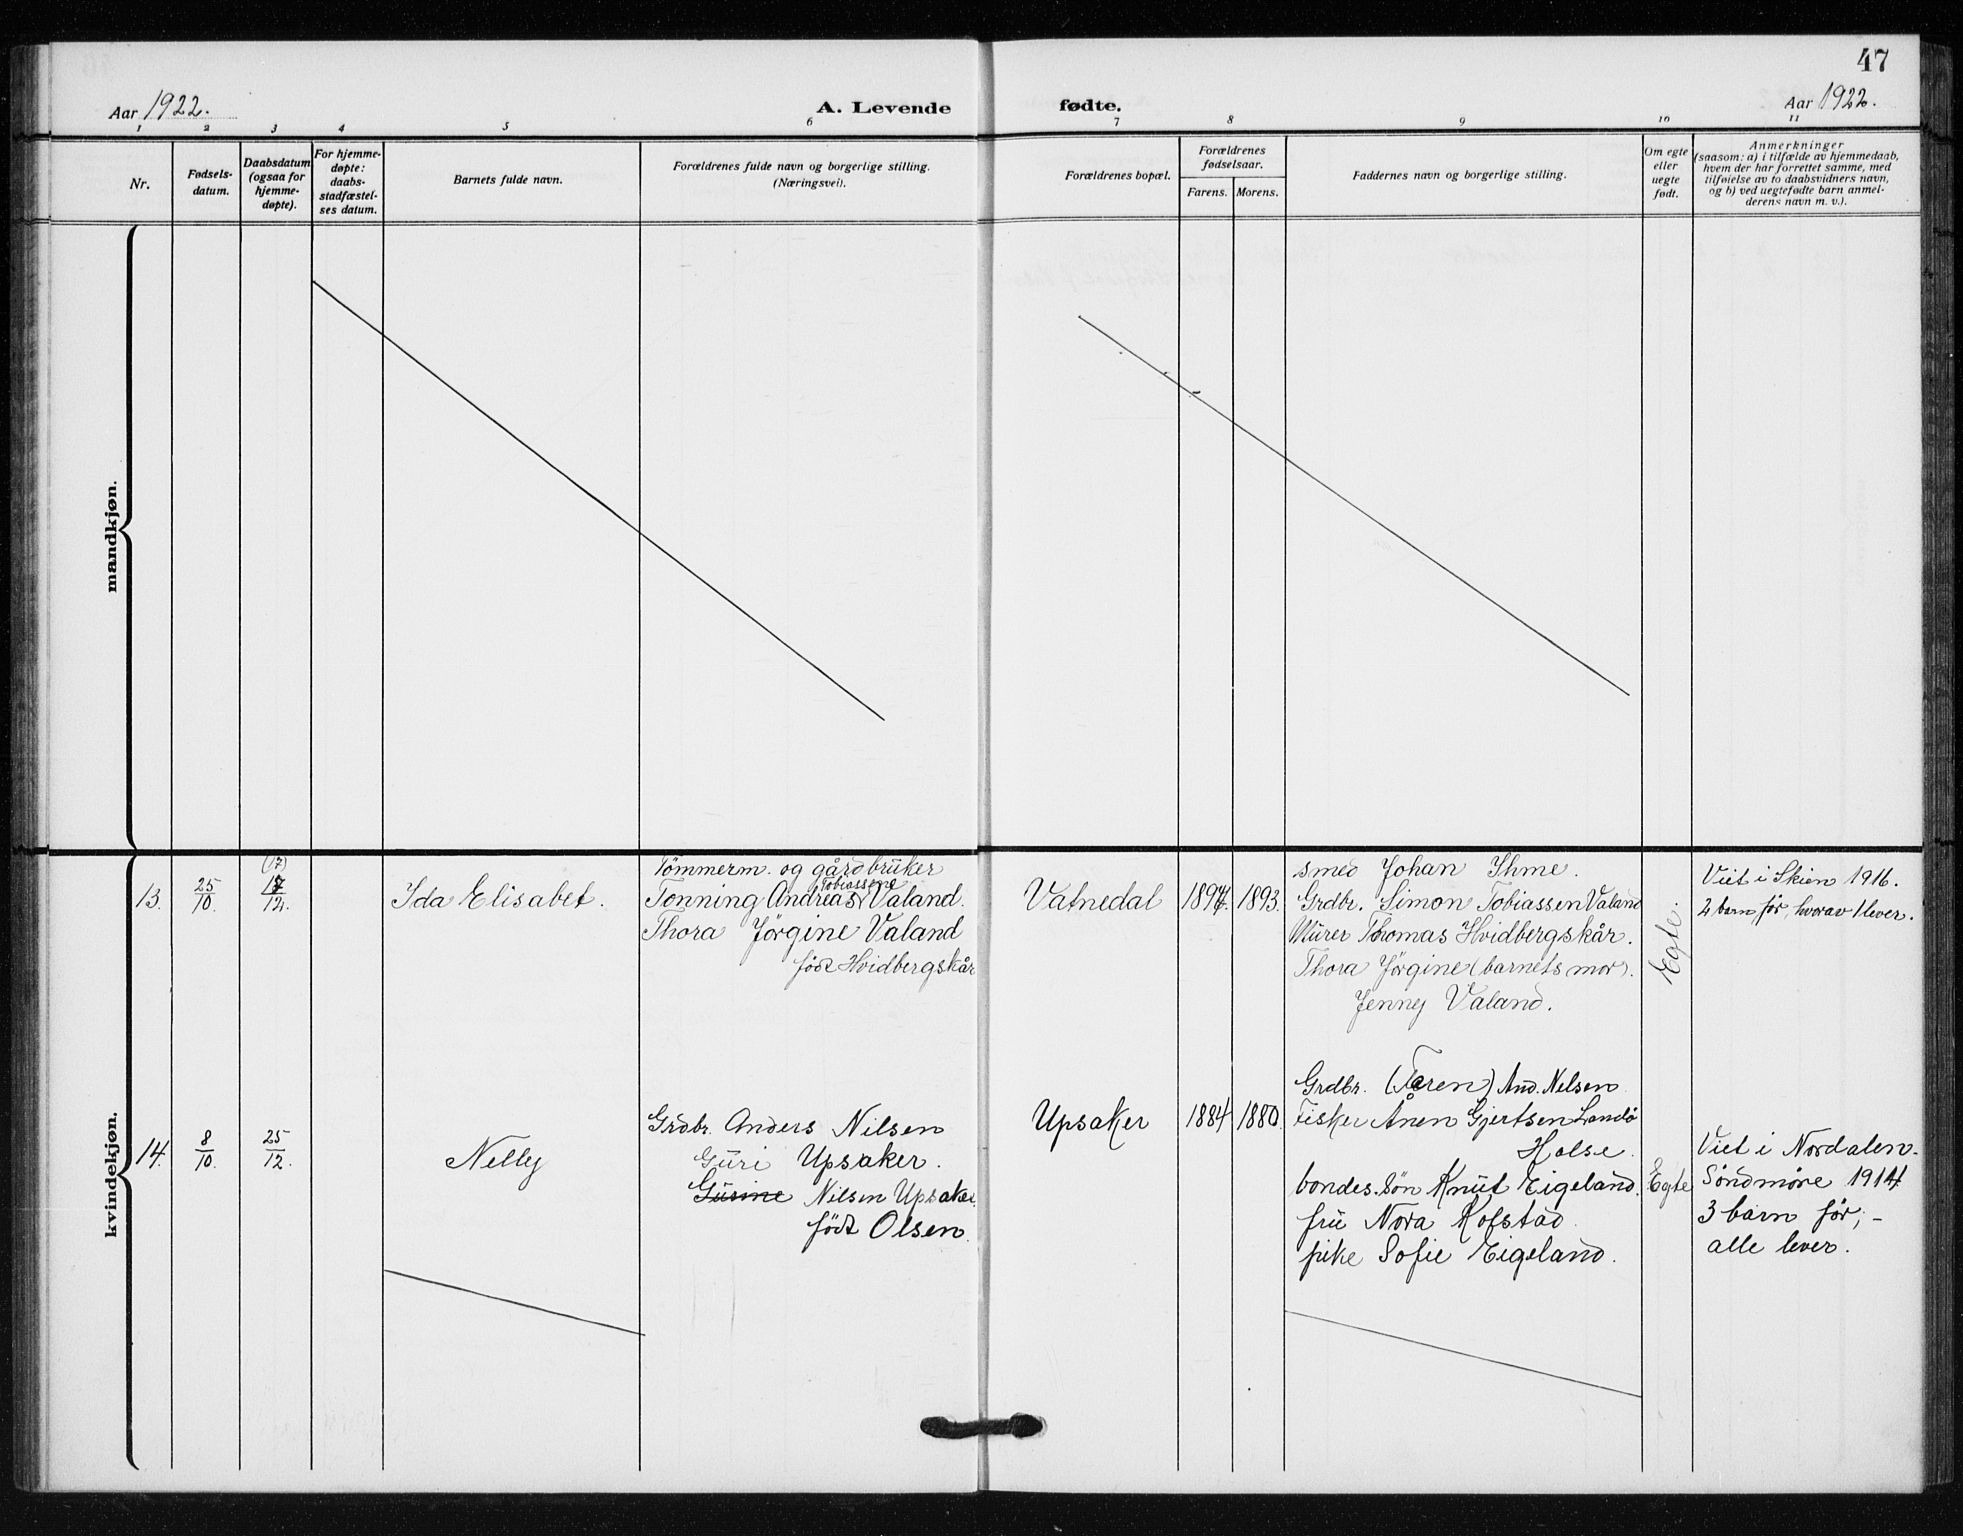 47
Aar 1922.
A. Levende fødte.
Aar 1922.
1 2 3 4 5 6 7 8 9 10 11
Nr.
Fødsels-
datum.
Daabsdatum
(ogsaa for
hjemme-
døpte).
For hjemme-
døpte:
daabs-
stadfæstel-
ses datum.
Barnets fulde navn.
Forældrenes fulde navn og borgerlige stilling.
(Næringsvei).
Forældrenes bopæl.
Forældrenes
fødselsaar.
Farens. Morens.
Faddernes navn og borgerlige stilling.
Om egte
eller
uegte
født.
Anmerkninger
(saasom: a) i tilfælde av hjemmedaab,
hvem der har forrettet samme, med
tilføielse av to daabsvidners navn,
og b) ved uegtefødte barn anmel-
derens navn m. v.).
mandkjøn.
kvindekjøn.
13.
25/10.
(17)
17/12.
Ida Elisabet.
Tömmerm. og gårdbruker
Tobiassene
Tønning Andreas Valand.
Thora Jörgine Valand
født Hvidbergskår
Vatnedal
1897.
1893.
smed Johan Ihme.
Grdbr. Simon Tobiassen Valand
Mürer Thomas Hvidbergskår.
Thora Jörgine (barnets mor).
Jenny Valand.
Egte.
Viet i Skien 1916.
2 barn før, hvorav 1 lever.
14.
8/10.
25/12.
Nelly
Grdbr. Anders Nilsen
Guri Upsaker.
Gusine Nilsen Upsaker.
født Olsen.
Upsaker
1884
1880.
Grdbr. (Faren) And. Nelsen
Fisker Ånen Gjertsen Landö
Holse.
bondes.søn Knut Eigeland.
fru Nora Kofstad.
pike Sofie Eigeland.
Egte
Viet i Nordalen.
Søndmøre 1914
3 barn før, –
alle lever.